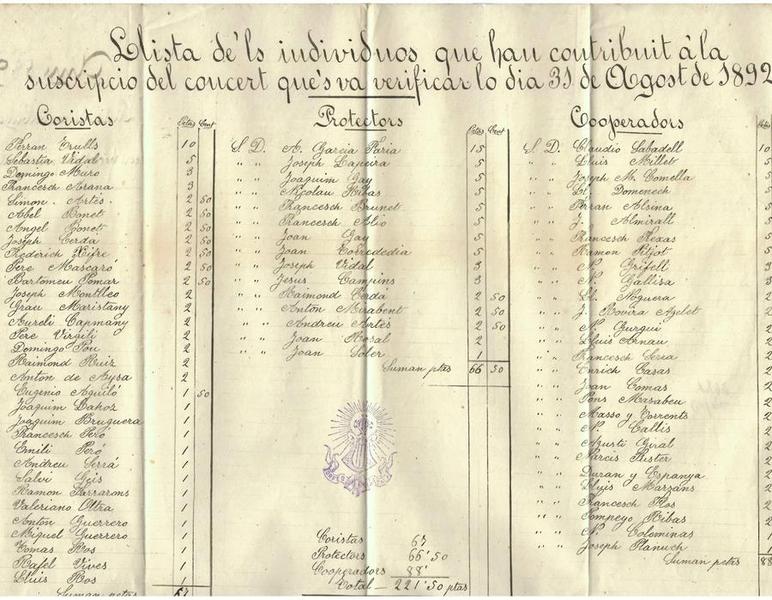 Llista de'ls individuos que han contribuit á la
suscripcio del concert que's va verificar lo dia 31 de Agost de 1892
Coristas
Petas Cent
Ferran Trulls 10
Sebastiá Vidal 5
Domingo Muro 3
Francesch Arana 3
Simon Artés 2 50
Abel Bonet 2 50
Angel Bonet 2 50
Joseph Cerda 2 50
Frederich Xifre 2 50
Pere Mascaró 2 50
Bartomeu Pomar 2 50
Joseph Montlleo 2
Grau Maristany 2
Aureli Capmany 2
Pere Virgili 2
Domingo Pou 2
Raimond Ruiz 2
Anton de Aysa 2
Eugenio Aguiló 1 50
Joaquim Bahoz 1
Joaquim Bruguera 1
Francesch Peró 1
Emili Peró 1
Andreu Serrá 1
Salvi Geis 1
Ramon Farrarons 1
Valeriano 1
Anton Guerrero 1
Miquel Guerrero 1
Tomas Ros 1
Rafel Vives 1
Lluis Ros 1
Suman petas 67
Protectors
Petas Cent
S. D. A. Garcia Faria 15
" " Joseph Lapeira 5
" " Joaquim Gay 5
" " Nicolau Ribas 5
" " Francesch Brunet 5
" " Francesch Alió 5
" " Joan Gay 5
" " Joan Torrededia 5
" " Joseph Vidal 3
" " Jesus Campins 3
" " Raimond Cerda 2 50
" " Anton Mirabent 2 50
" " Andreu Artés 2 50
" " Joan Rosal 2
" " Joan Soler 1
Suman ptas 66 50
Coristas 67
Protectors 66'50
Cooperadors 88'
Total — 221'50 ptas
Cooperadors
Petas
S. D. Claudio Sabadell 10
" " Lluis Millet
" " Joseph M. Comella
" " Ll. Domenech
" " Ferran Alsina
" " J. Almirall
" " Francesch Rexas
" " Ramon
" " N. Grifell
" " N. Gallisa
" " Ll. Noguera
" " J. Rovira
" " N. Gurgui
" " Lluis Arnau
" " Francesch Seria
" " Enrich Casas
" " Joan Comas
" " Pons Masabeu
" " Masso y Torrents
" " N. Callis
" " Agusti Giral
" " Narcis
" " Duran y Espanya
" " Lluis Marzans
" " Francesch Ros
" " Pompeyo Ribas
" " N. Colominas
" " Joseph Planuch
Suman petas 88